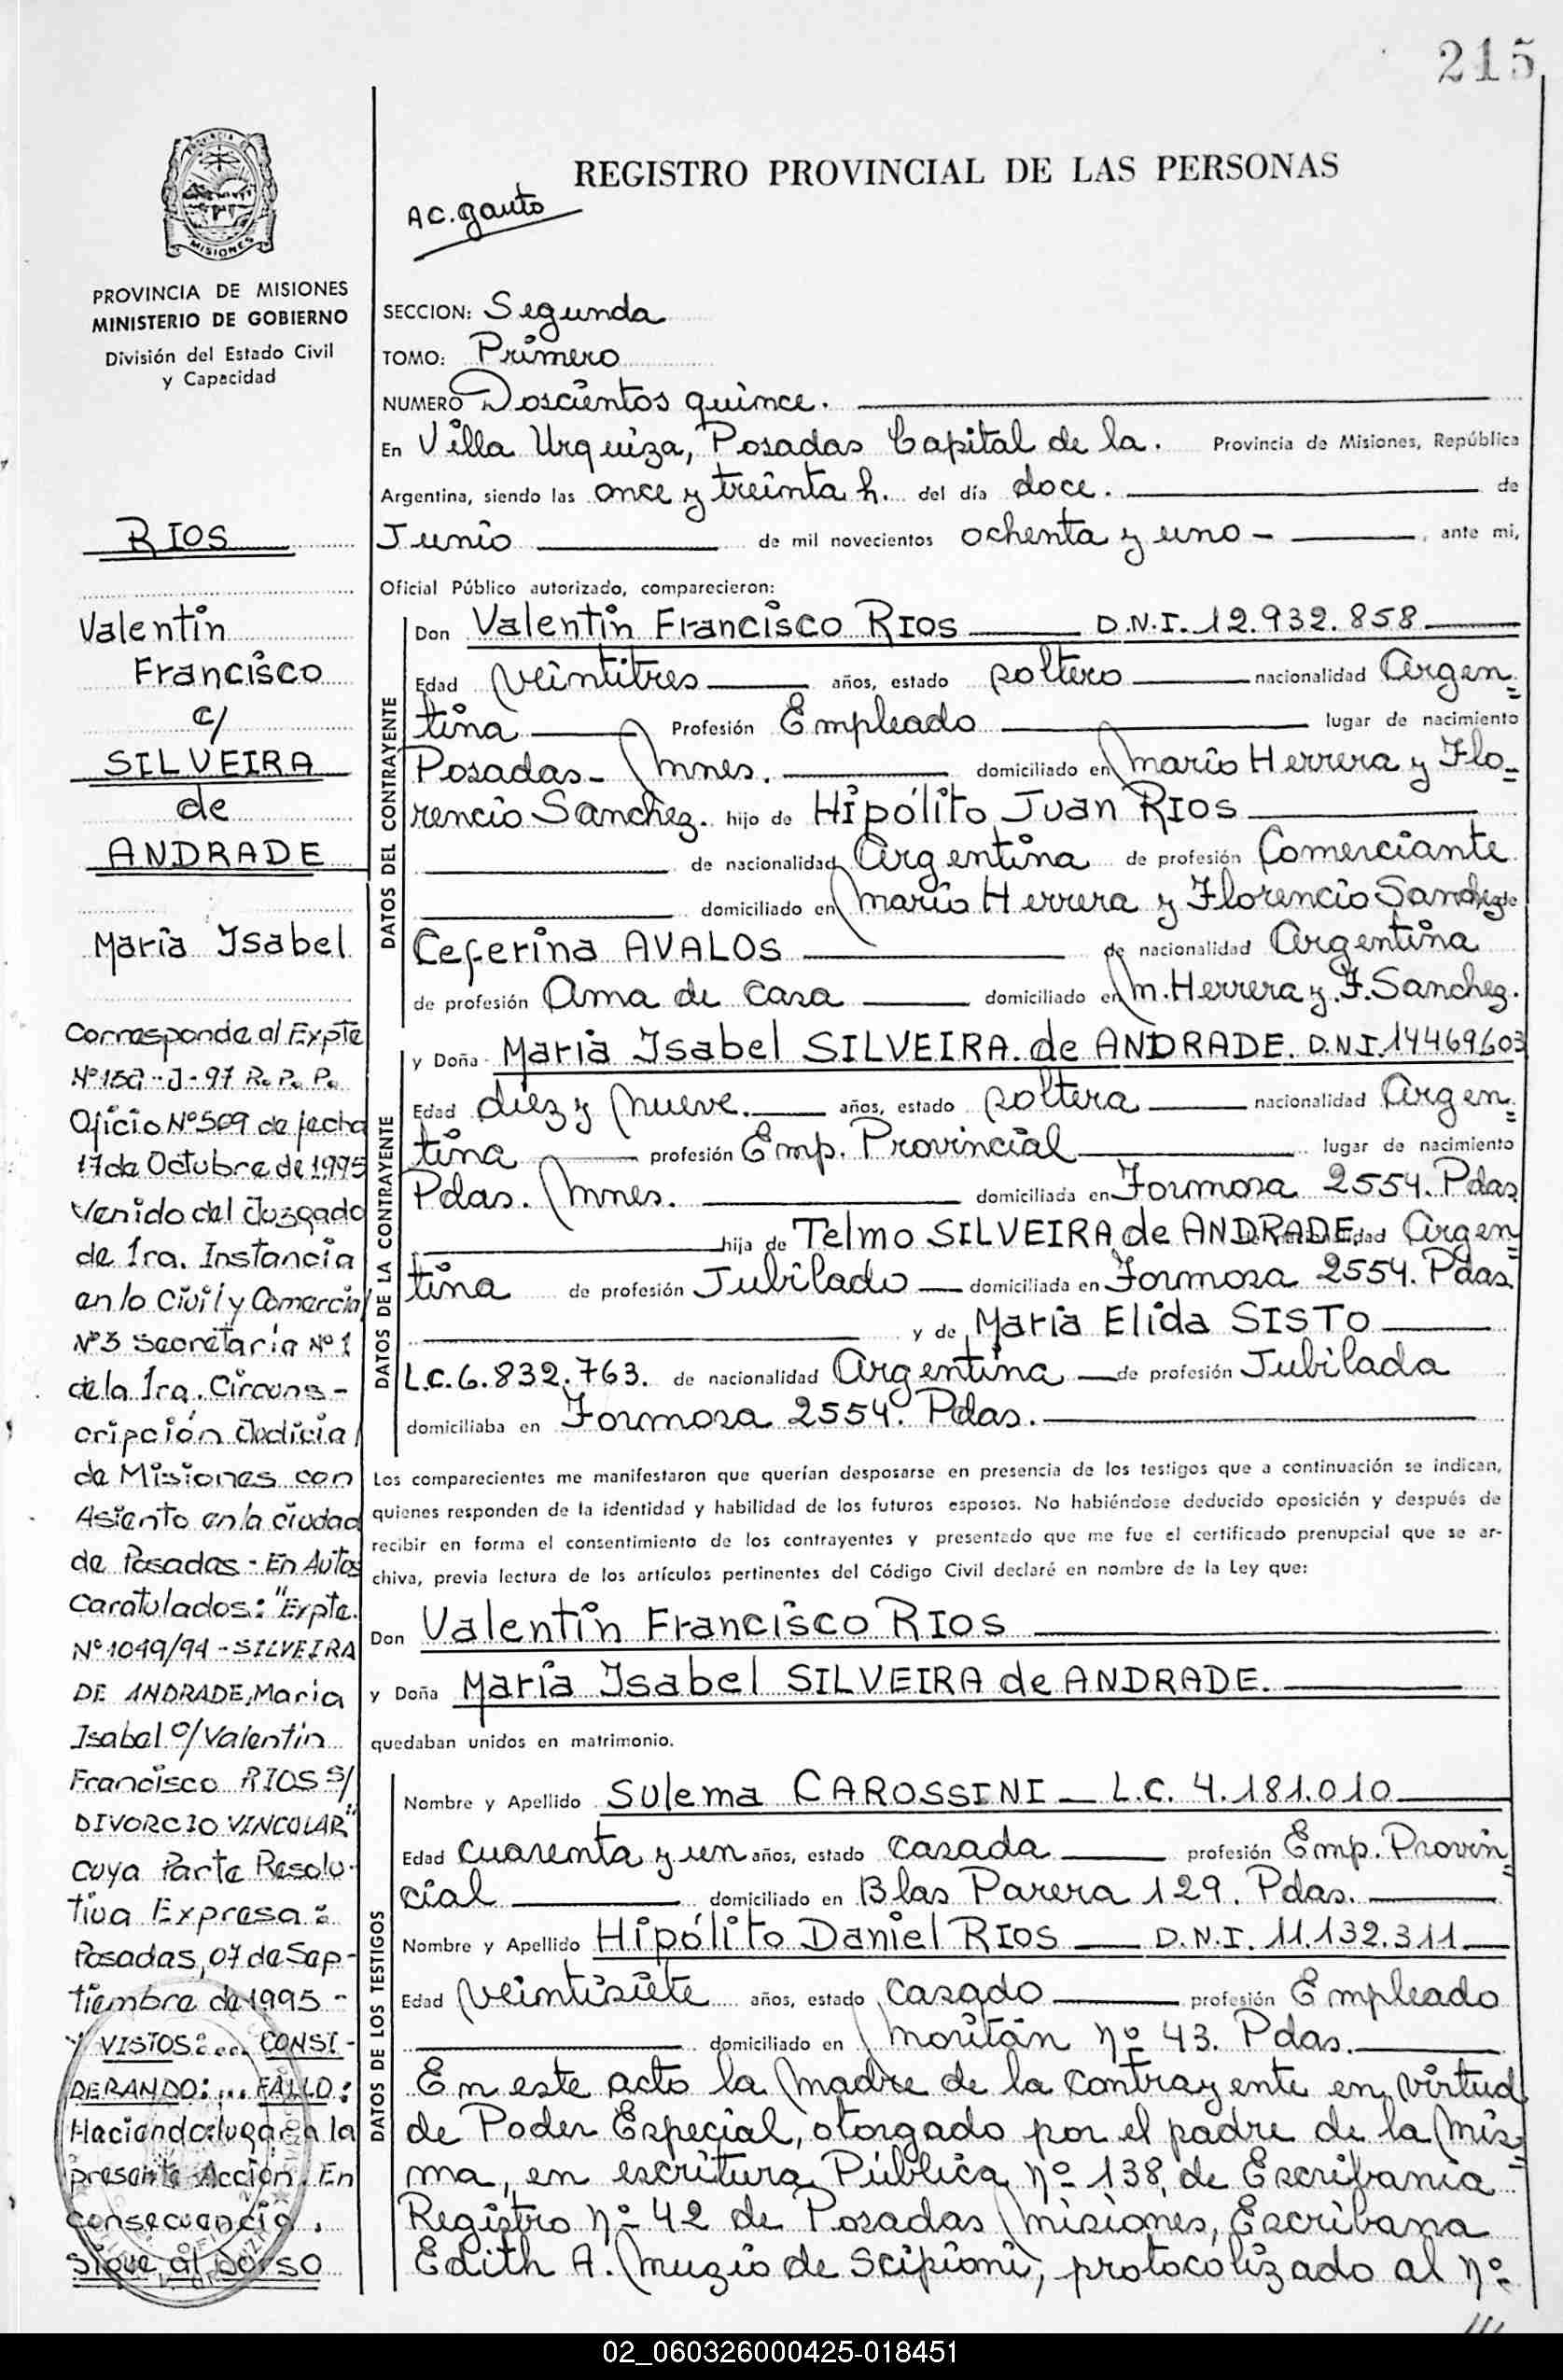 215
REGISTRO PROVINCIAL DE LAS PERSONAS
AC. gauto
MISIONES
PROVINCIA DE MISIONES
MINISTERIO DE GOBIERNO
División del Estado Civil
y Capacidad
RIOS
Valentín
Francisco
c/
SILVEIRA
de
ANDRADE
María Isabel
Corresponde al Expte
Nº -J-97 R.P.P.
Oficio Nº 509 de fecha
17 de Octubre de 1995
Venido del Juzgado
de 1ra. Instancia
en lo Civil y Comercial
Nº3 Secretaría Nº 1
de la 1ra. Circuns-
cripción Judicial
de Misiones con
Asiento en la ciudad
de Posadas - En Autos
Caratulados: "Expte.
Nº 1049/94 - SILVEIRA
DE ANDRADE, Maria
Isabel c/ Valentín
Francisco RIOS s/
DIVORCIO VINCULAR"
cuya Parte Resolu-
tiva Expresa:
Posadas, 07 de Sep-
tiembre de 1995 -
Y VISTOS:... CONSI-
DERANDO:... FALLO:
Haciendo lugar a la
presente Acción. En
consecuencia,
sigue al dorso
SECCION: Segunda
TOMO: Primero
NUMERO Doscientos quince.
En Villa Urquiza, Posadas Capital de la. Provincia de Misiones, República
Argentina, siendo las once y treinta h. del día doce. de
Junio de mil novecientos ochenta y uno - , ante mi,
Oficial Público autorizado, comparecieron:
DATOS DEL CONTRAYENTE
Don Valentín Francisco RIOS D.N.I. 12.932.858
Edad veintitres años, estado soltero nacionalidad Argen=
tina Profesión Empleado lugar de nacimiento
Posadas - Mnes. domiciliado en Mario Herrera y Flo=
rencio Sanchez. hijo de Hipólito Juan RIOS
de nacionalidad Argentina de profesión Comerciante
domiciliado en Mario Herrera y Florencio Sanchez de
Ceferina AVALOS de nacionalidad Argentina
de profesión Ama de casa domiciliado en M. Herrera y F. Sanchez.
DATOS DE LA CONTRAYENTE
y Doña María Isabel SILVEIRA de ANDRADE. D.N.I. 14469603
Edad diez y nueve. años, estado soltera nacionalidad Argen=
tina profesión Emp. Provincial lugar de nacimiento
Pdas. Mnes. domiciliada en Formosa 2554. Pdas
hija de Telmo SILVEIRA de ANDRADE, Argen=
tina de profesión Jubilado domiciliada en Formosa 2554. Pdas.
y de María Elida SISTO
L.C. 6.832.763. de nacionalidad Argentina de profesión Jubilada
domiciliaba en Formosa 2554. Pdas.
Los comparecientes me manifestaron que querían desposarse en presencia de los testigos que a continuación se indican,
quienes responden de la identidad y habilidad de los futuros esposos. No habiéndose deducido oposición y después de
recibir en forma el consentimiento de los contrayentes y presentado que me fue el certificado prenupcial que se ar-
chiva, previa lectura de los artículos pertinentes del Código Civil declaré en nombre de la Ley que:
Don Valentín Francisco RIOS
y Doña María Isabel SILVEIRA de ANDRADE.
quedaban unidos en matrimonio.
DATOS DE LOS TESTIGOS
Nombre y Apellido Sulema CAROSSINI - L.C. 4.181.010
Edad cuarenta y un años, estado casada profesión Emp. Provin=
cial domiciliado en Blas Parera 129. Pdas.
Nombre y Apellido Hipólito Daniel RIOS D.N.I. 11.132.311
Edad veintisiete años, estado casado profesión Empleado
domiciliado en Moritán nº 43. Pdas.
En este acto la madre de la contrayente en virtud
de Poder Especial, otorgado por el padre de la mis=
ma, en escritura Pública nº 138, de Escribania
Registro nº 42 de Posadas Misiones, Escribana
Edith A. Muzio de Scipioni, protocolizado al nº
///
02_060326000425-018451